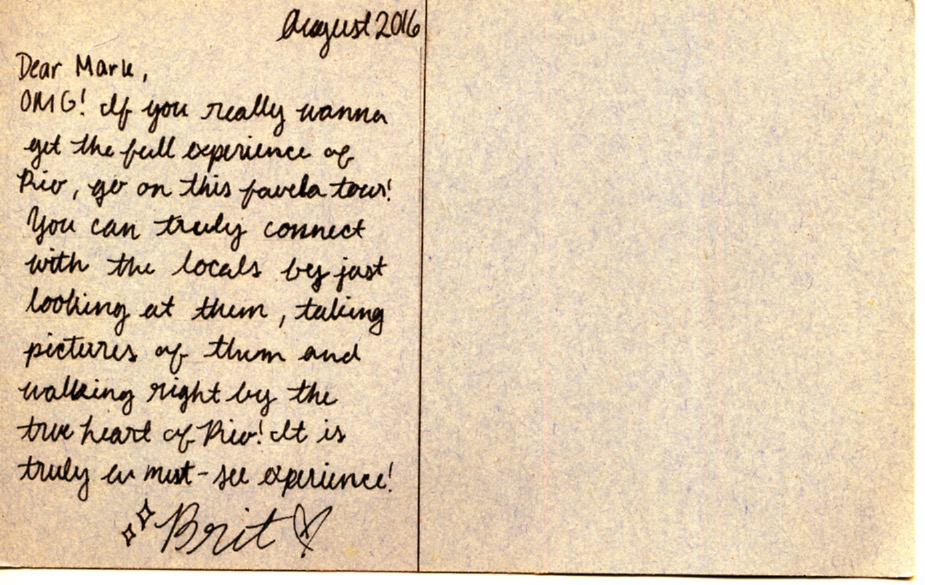 August 2016
Dear Mark,
OMG! If you really wanna
get the full experience of
Rio, go on this favela tour!
You can truly connect
with the locals by just
looking at them, taking
pictures of them and
walking right by the
true heart of Rio! It is
truly a must-see experience!
Brit